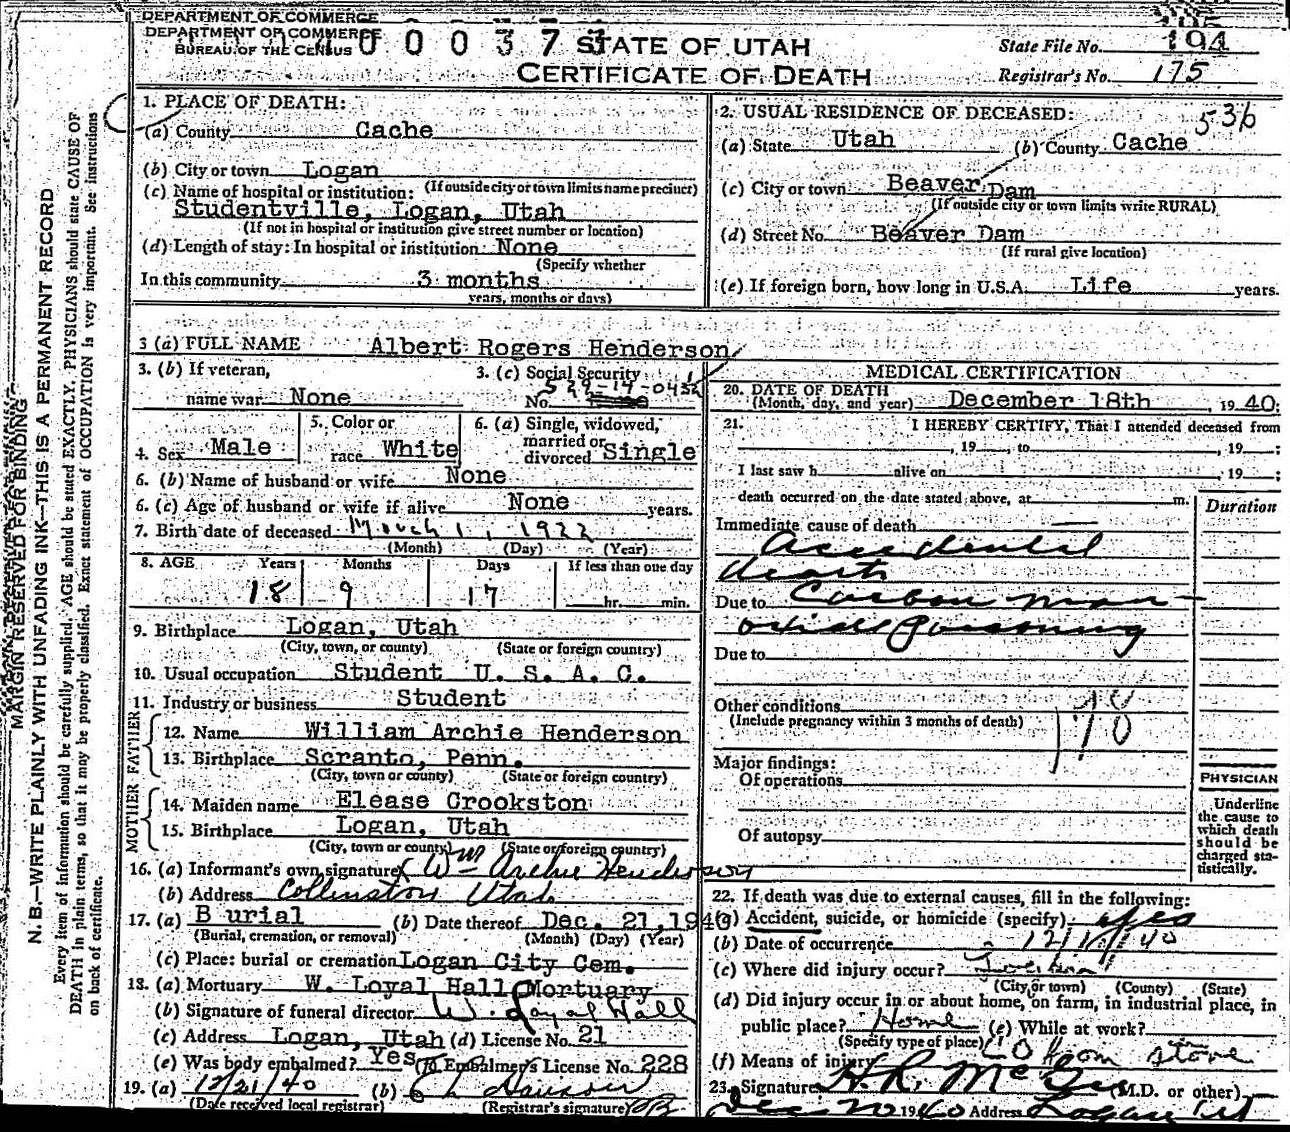 DEPARTMENT OF COMMERCE
DEPARTMENT OF COMMERCE
BUREAU OF THE CENSUS
0 0 0 3 7
STATE OF UTAH
CERTIFICATE OF DEATH
State File No. 194
Registrar's No. 175
1. PLACE OF DEATH:
(a) County Cache
(b) City or town Logan
(If outside city or town limits name precinct)
(c) Name of hospital or institution:
Studentville, Logan, Utah
(If not in hospital or institution give street number or location)
(d) Length of stay: In hospital or institution None
(Specify whether
In this community 3 months
years, months or days)
2. USUAL RESIDENCE OF DECEASED:
536
(a) State Utah (b) County Cache
(c) City or town Beaver Dam
(If outside city or town limits write RURAL)
(d) Street No. Beaver Dam
(If rural give location)
(e) If foreign born, how long in U.S.A. Life years.
3 (a) FULL NAME Albert Rogers Henderson
3. (b) If veteran,
name war None
3. (c) Social Security
No. 529-14-0432
4. Sex Male
5. Color or
race White
6. (a) Single, widowed,
married or
divorced Single
6. (b) Name of husband or wife None
6. (c) Age of husband or wife if alive None years.
7. Birth date of deceased March 1, 1922
(Month) (Day) (Year)
8. AGE Years Months Days If less than one day
18 9 17 hr. min.
9. Birthplace Logan, Utah
(City, town, or county) (State or foreign country)
10. Usual occupation Student U. S. A. C.
11. Industry or business Student
FATHER
12. Name William Archie Henderson
13. Birthplace Scranto, Penn.
(City, town or county) (State or foreign country)
MOTHER
14. Maiden name Elease Crookston
15. Birthplace Logan, Utah
(City, town or county) (State or foreign country)
16. (a) Informant's own signature Wm Archie Henderson
(b) Address Collinston Utah
17. (a) Burial (b) Date thereof Dec. 21, 1940
(Burial, cremation, or removal) (Month) (Day) (Year)
(c) Place: burial or cremation Logan City Cem.
18. (a) Mortuary W. Loyal Hall Mortuary
(b) Signature of funeral director W. Loyal Hall
(c) Address Logan, Utah (d) License No. 21
(e) Was body embalmed? Yes (f) Embalmer's License No. 228
19. (a) 12/21/40 (b)
(Date received local registrar) (Registrar's signature)
MEDICAL CERTIFICATION
20. DATE OF DEATH
(Month, day, and year) December 18th, 1940:
21. I HEREBY CERTIFY, That I attended deceased from
, 19 , to , 19 ;
I last saw h alive on , 19 ;
death occurred on the date stated above, at m.
Duration
Immediate cause of death
Accidental
death
Due to Carbon mon-
oxide Poisoning
Due to
Other conditions
(Include pregnancy within 3 months of death)
178
Major findings:
Of operations
Of autopsy
PHYSICIAN
Underline
the cause to
which death
should be
charged sta-
tistically.
22. If death was due to external causes, fill in the following:
(a) Accident, suicide, or homicide (specify) yes
(b) Date of occurrence
(c) Where did injury occur?
(City or town) (County) (State)
(d) Did injury occur in or about home, on farm, in industrial place, in
public place? Home (e) While at work?
(Specify type of place)
(f) Means of injury CO from stove
23. Signature (M.D. or other)
Dec 20 1940 Address Logan Ut
MARGIN RESERVED FOR BINDING
N. B.—WRITE PLAINLY WITH UNFADING INK—THIS IS A PERMANENT RECORD
Every item of information should be carefully supplied. AGE should be stated EXACTLY. PHYSICIANS should state CAUSE OF
DEATH in plain terms, so that it may be properly classified. Exact statement of OCCUPATION is very important. See instructions
on back of certificate.